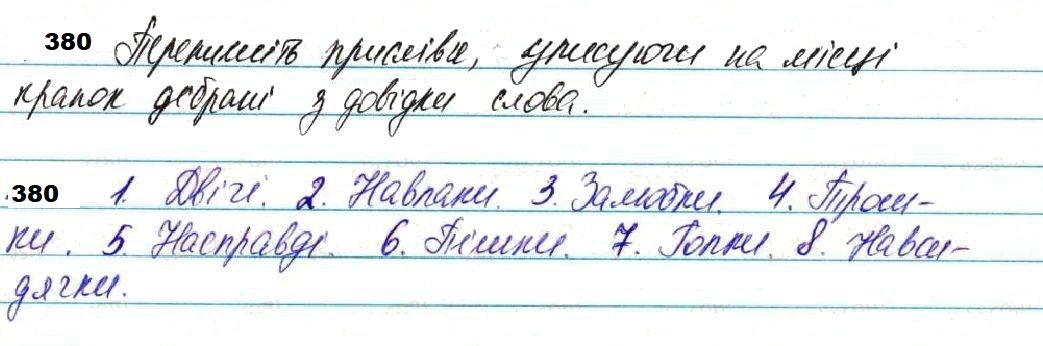 380 Перепишіть прислівя, уписуючи на місці
крапок дібрані з довідки слова.
380 1. Двічі. 2. Навпаки. 3. Залюбки. 4. Трош-
ки. 5. Насправді. 6. Пішки. 7. Гопки. 8. Навси-
дячки.